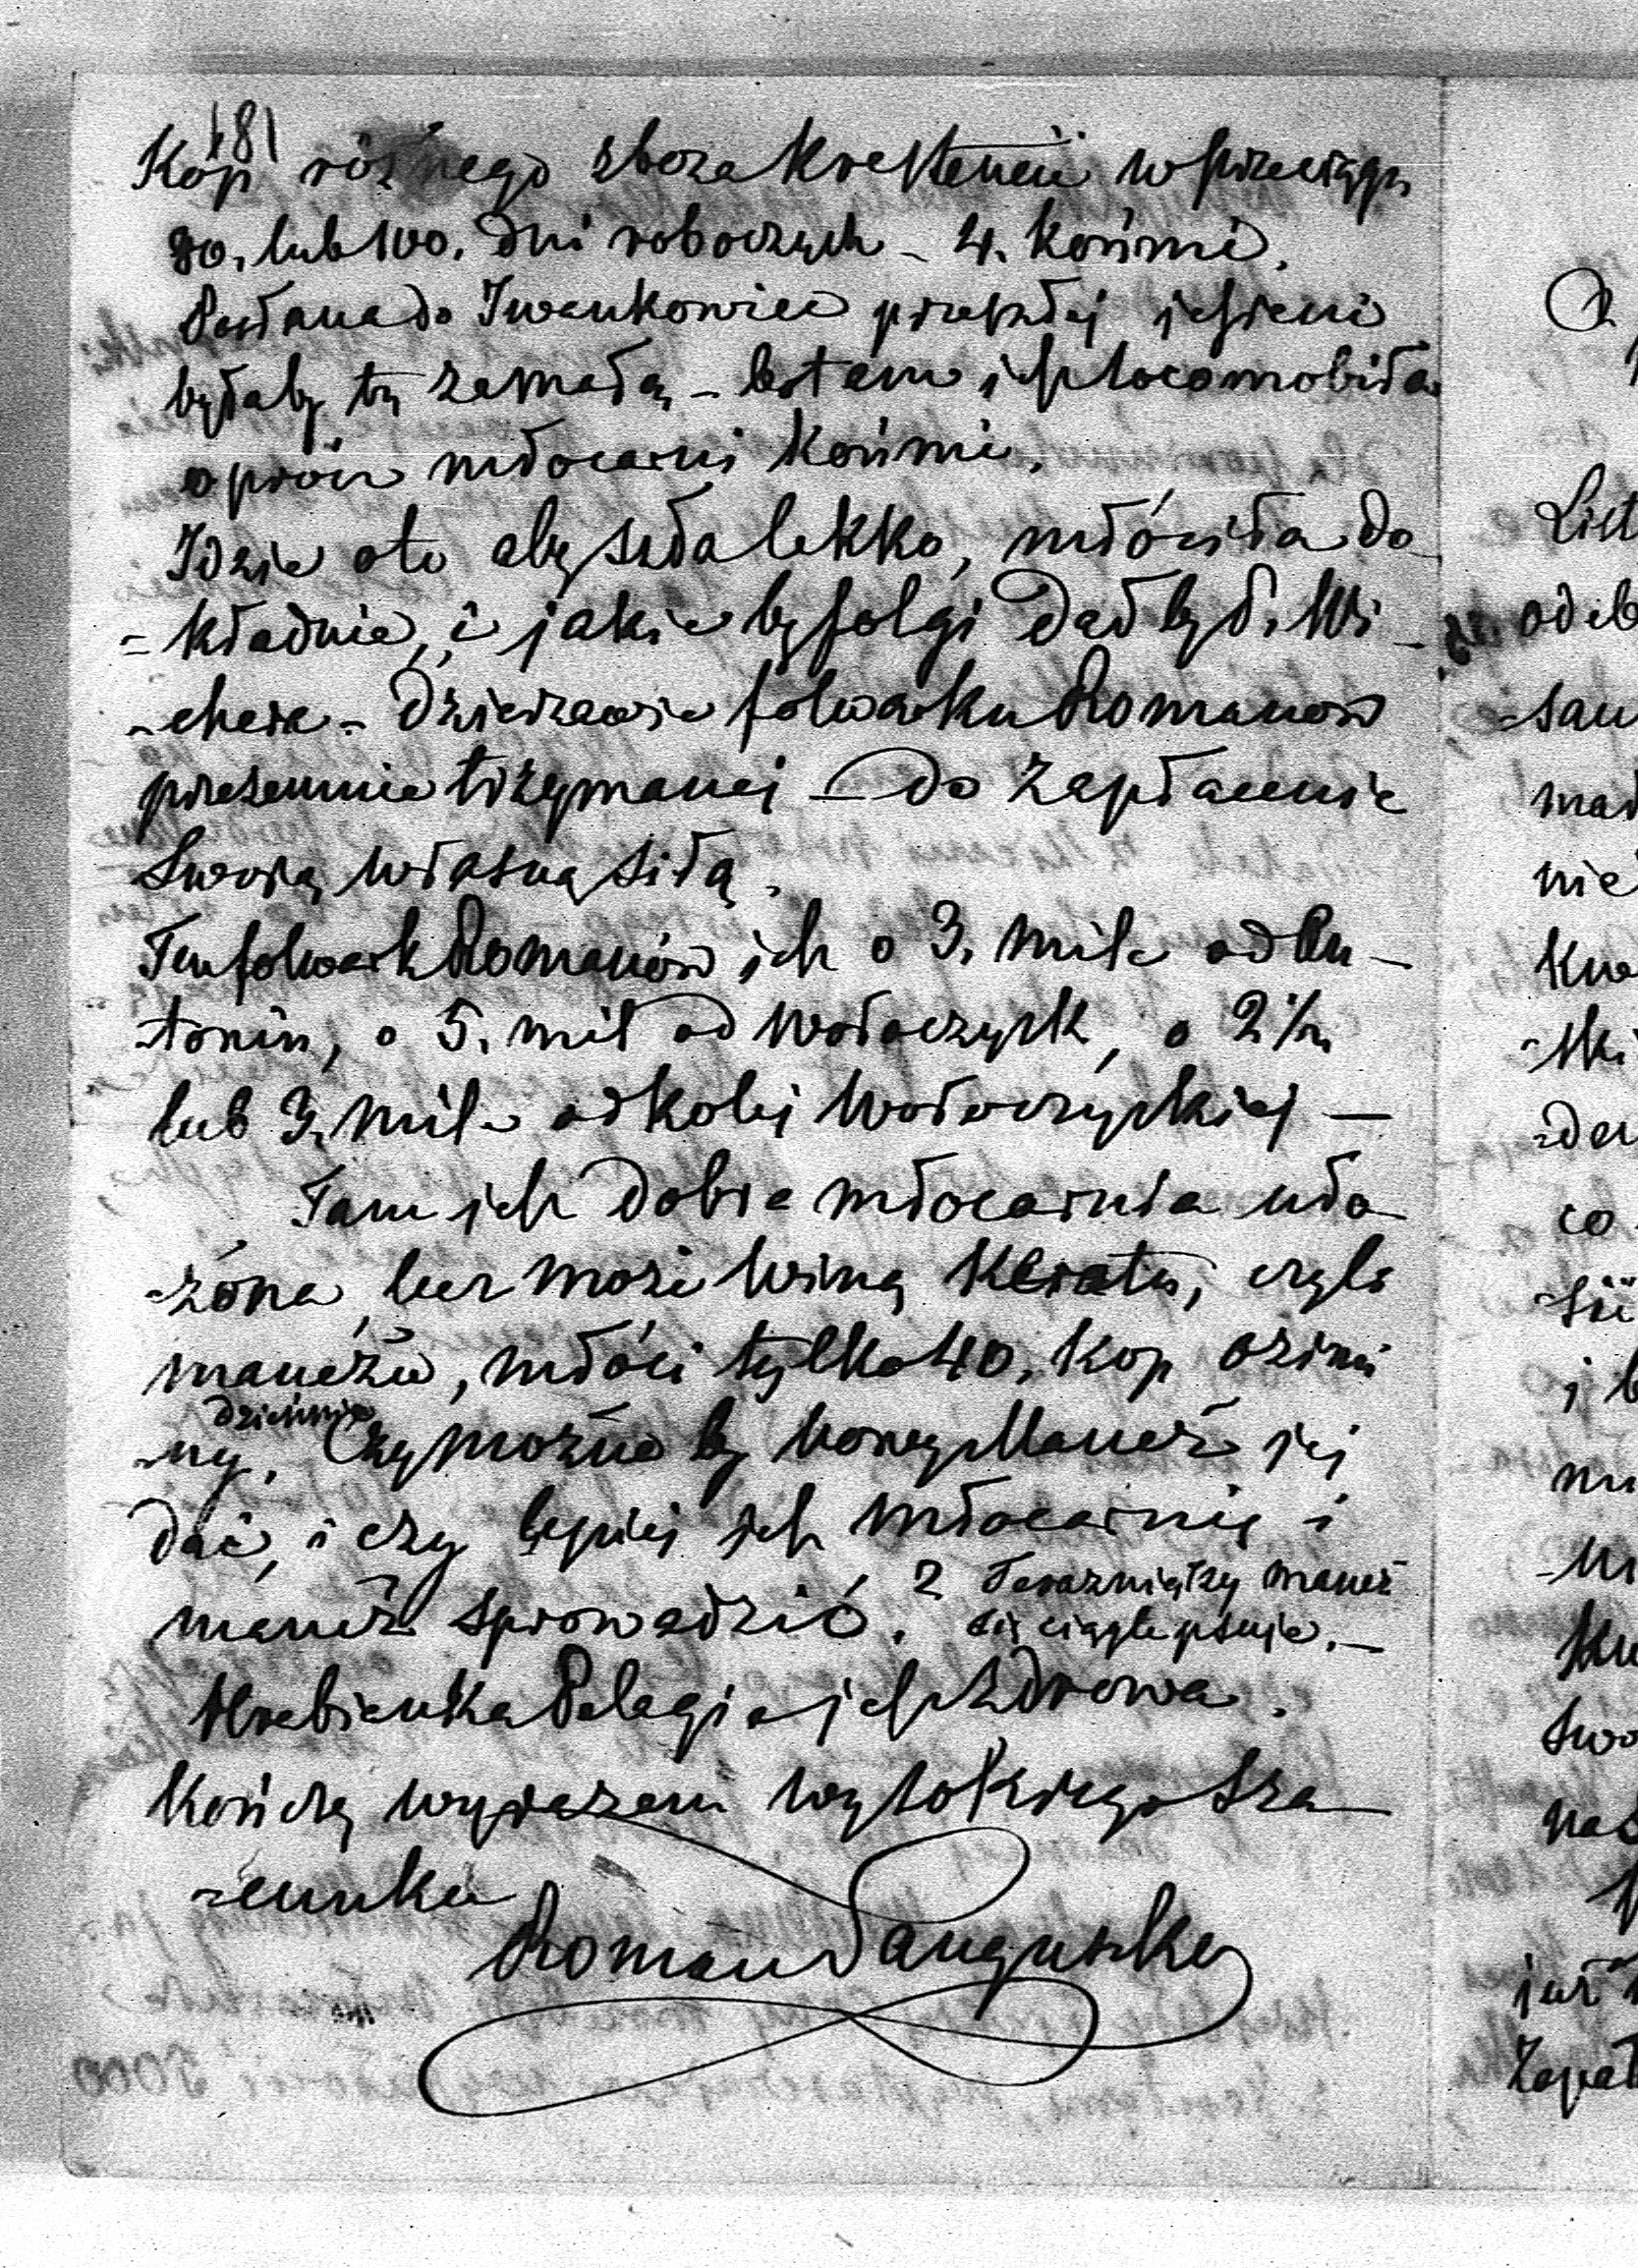 181
Kop różnego zboza krestencii w przeciągu
80. lub 100. dni roboczych – 4. końmi.
Posłana do Iwankowiec przeszłej jesieni
byłaby tu za małą – bo tam jest locomobila
oprócz młocarni końmi.
Idzie oto aby szła lekko, młóciła do-
-kładnie, i jakie by folgi dał by P. Wi-
-cherek – Dzierzawie folwarku Romanow
przezemnie trzymanej – do zapłacenia
swoją własną siłą.
Ten folwark Romanów jest o 3. mile od An-
-tonin, o 5. mil od Wołoczysk, o 2 1/2
lub 3. mile od kolej Wołoczyskiej —
Tam jest dobra młocarnia uło-
-żona, lecz może winą Kieratu, czyli
maneżu, młóci tylko 40. kop ozimi-
-ny dziennie. Czy można by nowy Maneż jej
dać, i czy lepiej jest młocarnię i
maneż sprowadzić. ? Terazniejszy maneż
się ciągle psuje. —
Hrabianka Pelagia jest zdrowa.
Kończę wyrazem wysokiego sza-
-cunku
Roman Sanguszko
List
odeb
-san
mad
nie
kwe
-ski
-der
co
-sii
i b
mi
-ni
Kw
swo
nad
już
Zapał